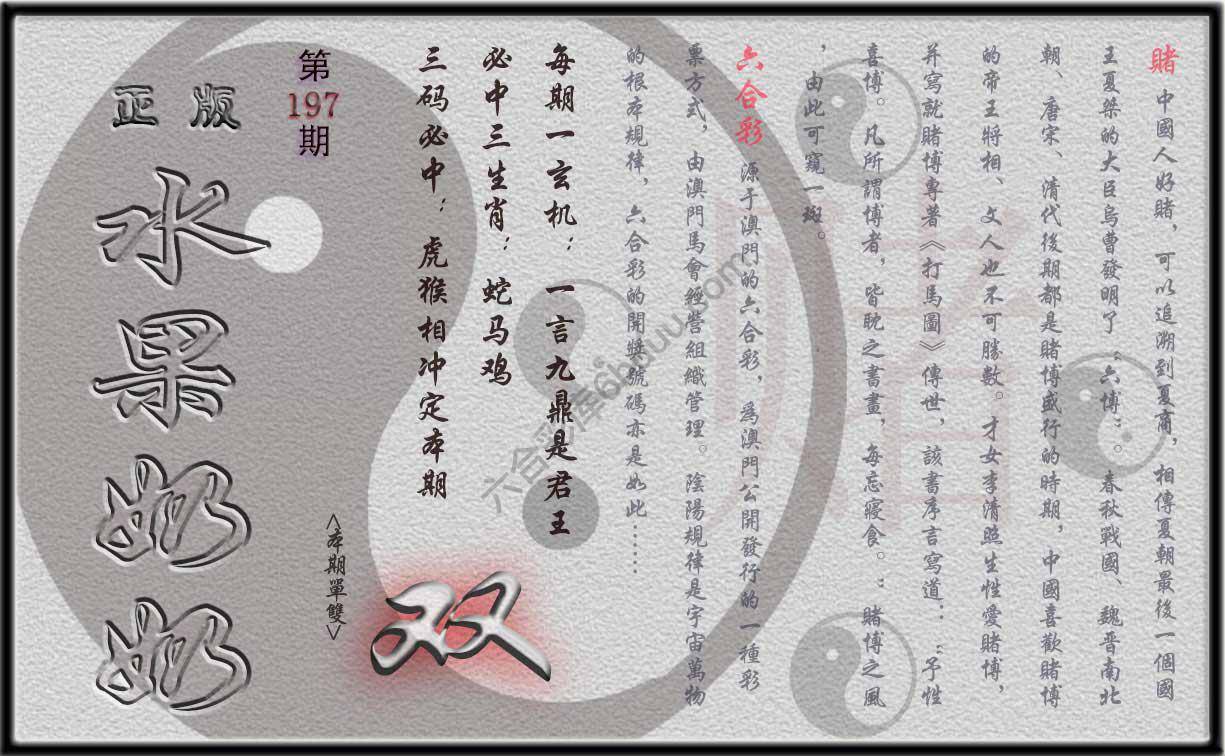 賭 中國人好賭，可以追溯到夏商，相傳夏朝最後一個國
王夏桀的大臣烏曹發明了“六博”。春秋戰國、魏晉南北
朝、唐宋、清代後期都是賭博盛行的時期，中國喜歡賭博
的帝王將相、文人也不可勝數。才女李清照生性愛賭博，
并寫就賭博專著《打馬圖》傳世，該書序言寫道：“予性
喜博。凡所謂博者，皆耽之書畫，每忘寢食。”賭博之風
，由此可窺一斑。
六合彩 源于澳門的六合彩，為澳門公開發行的一種彩
票方式，由澳門馬會經營組織管理。陰陽規律是宇宙萬物
的根本規律，六合彩的開獎號碼亦是如此……
每期一玄机：一言九鼎是君王
必中三生肖：蛇马鸡
三码必中：虎猴相冲定本期
第
197
期
<本期單雙>
双
正版
水果奶奶
賭
六合彩库6hduu.com